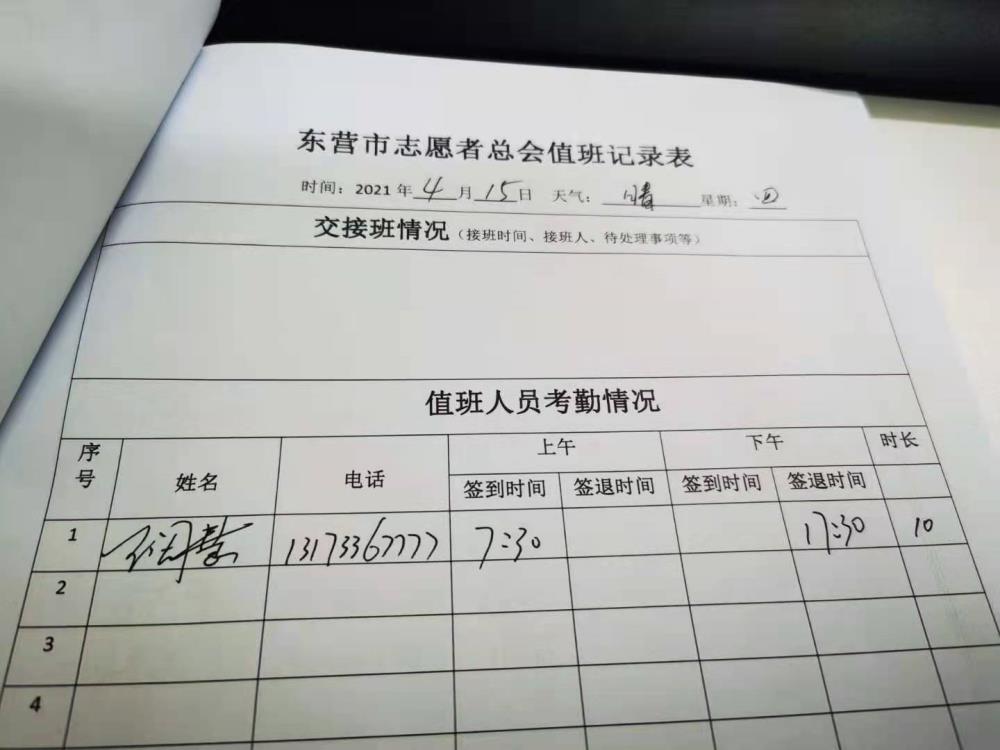 东营市志愿者总会值班记录表
时间：2021年4月15日 天气：晴 星期：四
交接班情况（接班时间、接班人、待处理事项等）
值班人员考勤情况
序号 姓名 电话 上午 下午 时长
签到时间 签退时间 签到时间 签退时间
1 13173367777 7:30 17:30 10
2
3
4